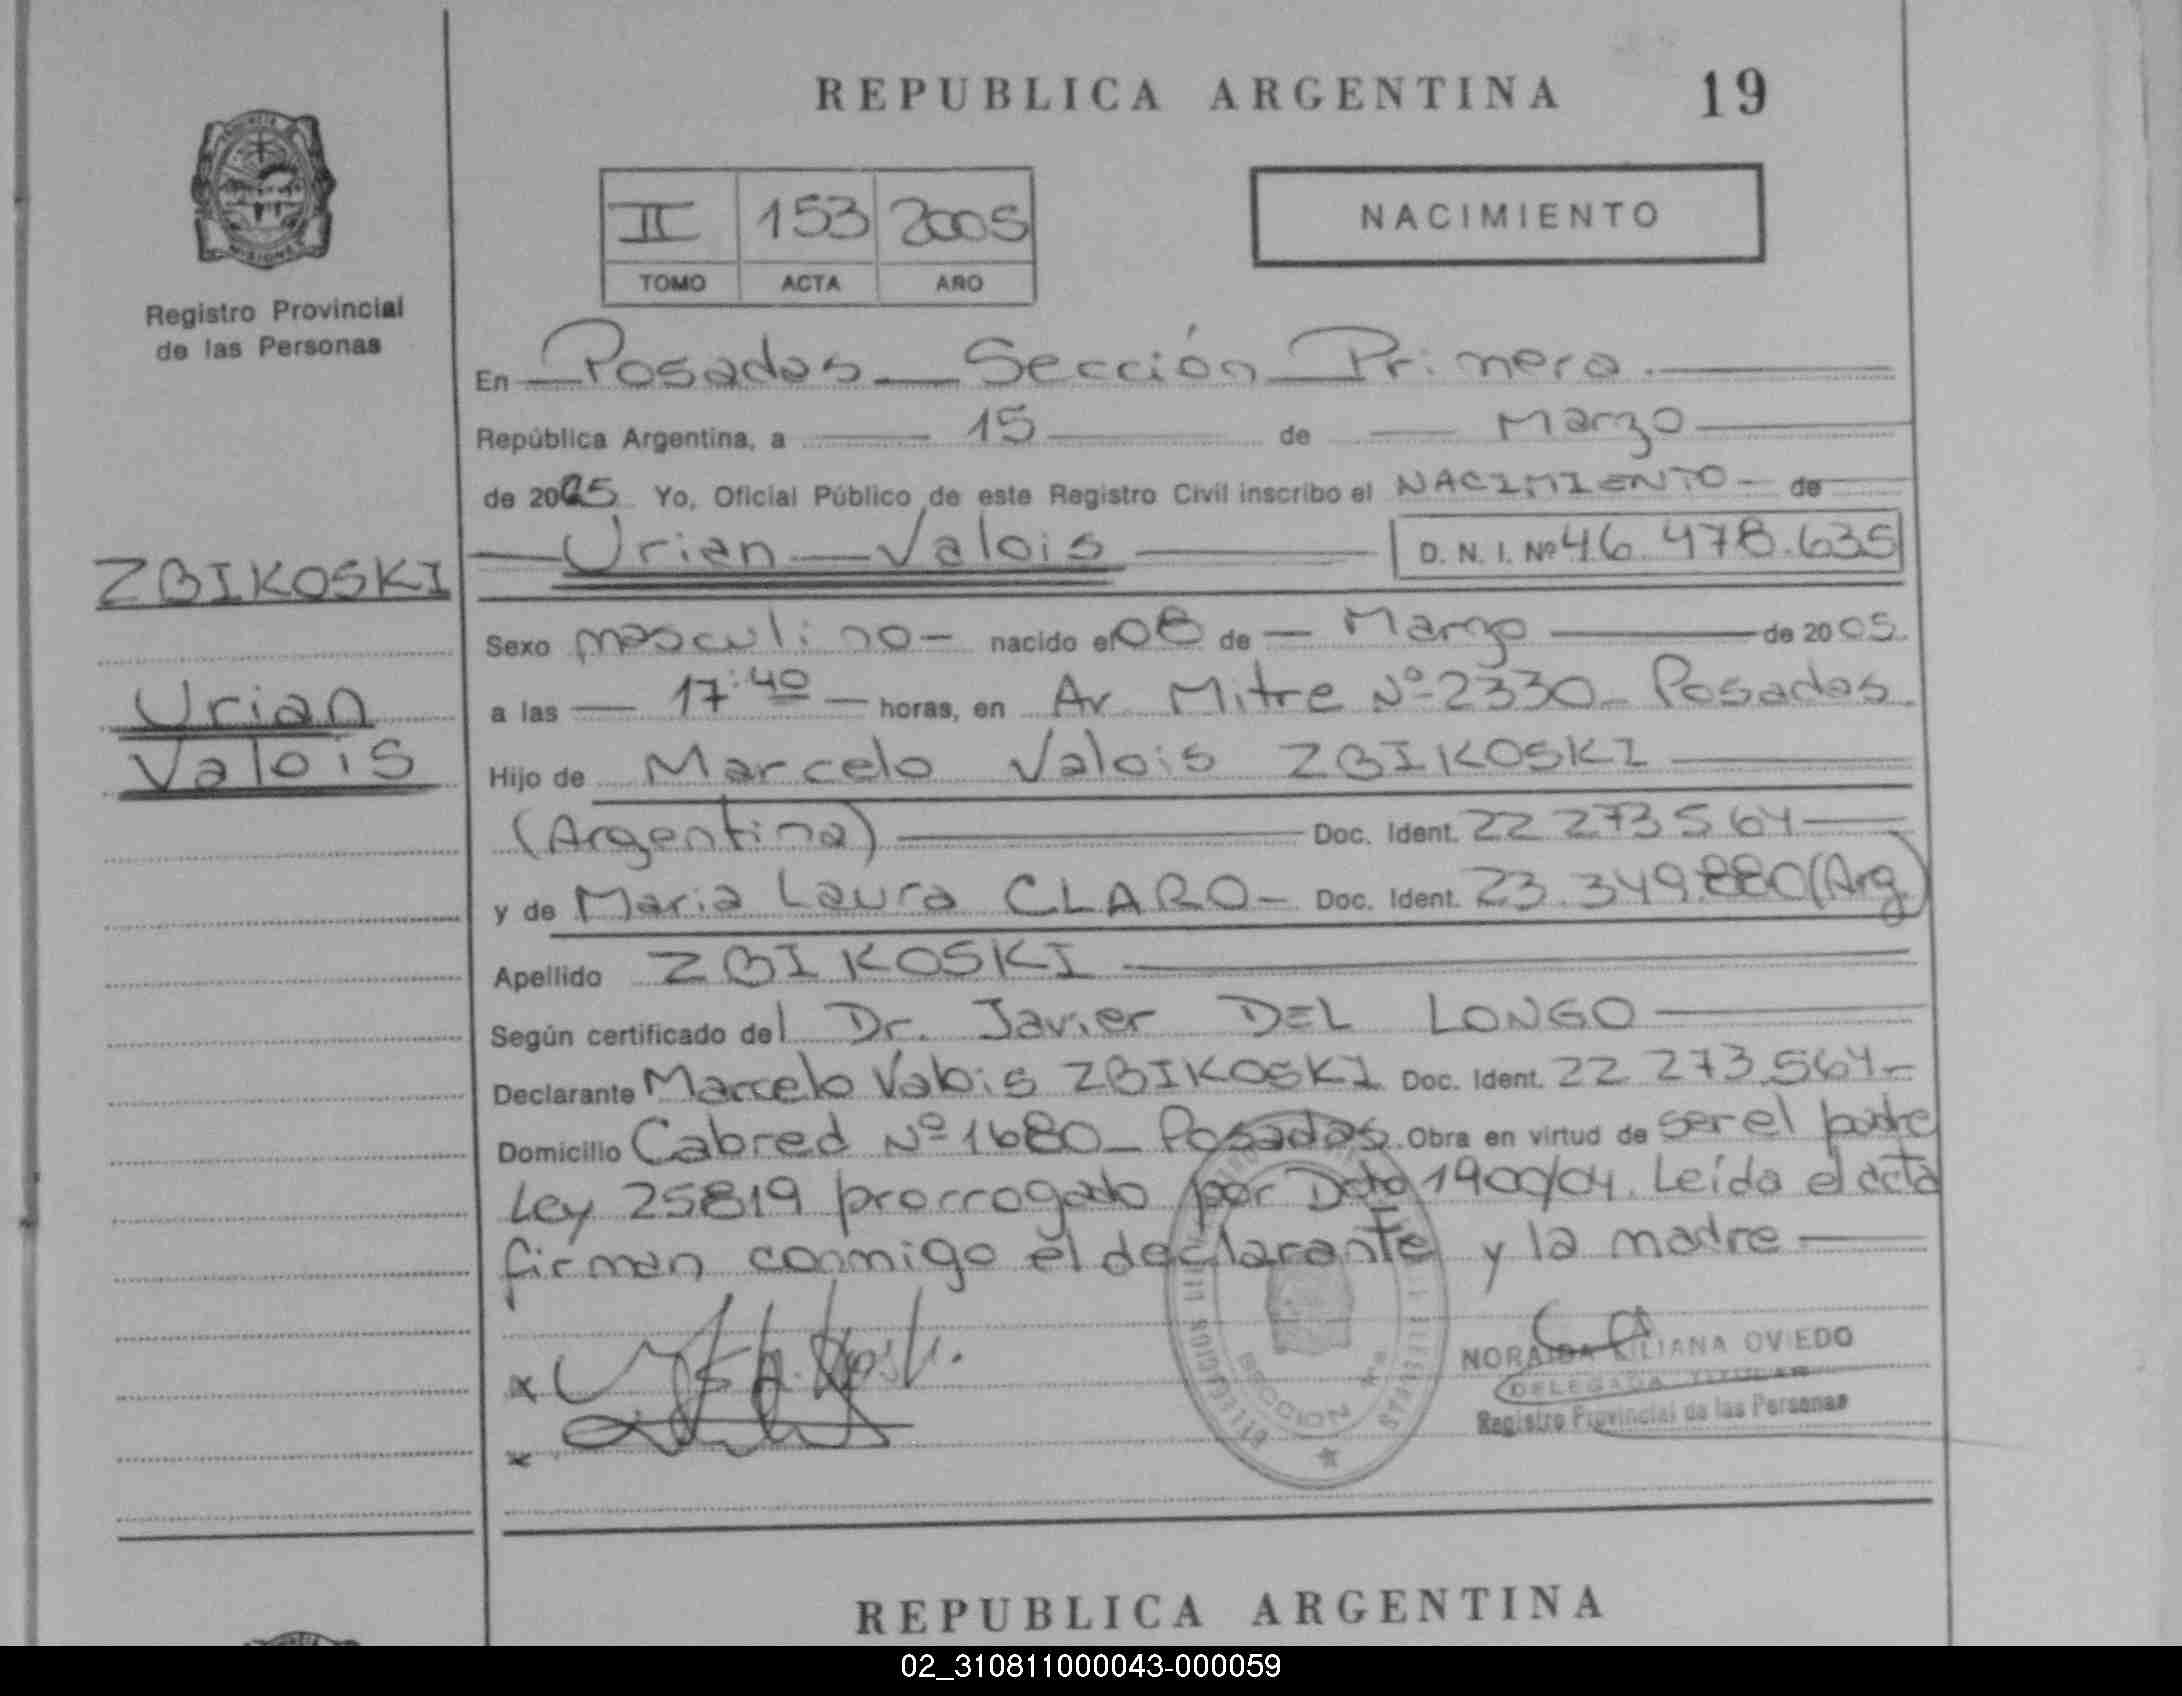 REPUBLICA ARGENTINA 19
II 153 2005
TOMO ACTA AÑO
NACIMIENTO
Registro Provincial
de las Personas
En Posadas Sección Primera.
República Argentina, a 15 de Marzo
de 2005 Yo, Oficial Público de este Registro Civil inscribo el NACIMIENTO - de
Urian Valois D. N. I. Nº 46.478.635
ZBIKOSKI
Urian
Valois
Sexo masculino - nacido el 08 de - Marzo de 2005.
a las 17:40 horas, en Av. Mitre Nº 2330 - Posadas.
Hijo de Marcelo Valois ZBIKOSKI
(Argentina) Doc. Ident. 22 273 564
y de Maria Laura CLARO - Doc. Ident. 23.349.880 (Arg)
Apellido ZBIKOSKI
Según certificado del Dr. Javier DEL LONGO
Declarante Marcelo Valois ZBIKOSKI Doc. Ident. 22 273.564 -
Domicilio Cabred Nº 1680 - Posadas. Obra en virtud de ser el padre
Ley 25819 prorrogado por Dcto 1900/04. Leída el acta
firman conmigo el declarante y la madre
x
x
SECCION
NORAIDA LILIANA OVIEDO
DELEGADA TITULAR
Registro Provincial de las Personas
REPUBLICA ARGENTINA
02_310811000043-000059